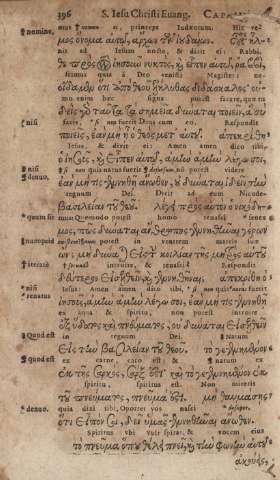 396 S. Iesu Christi Euang. CAP.
nomine, princeps Iudæorum. Hic
μος ὄνομα αυτῷ, ἄρχων τῶν ἰουδαίων.
nit ad Iesum nocte, & dixit ei: Rabbi,
θε πρὸς τὸν ἰησοῦν νυκτὸς, καὶ εἶπεν αὐτῷ, ῥαββὶ,
scimus quia à Deo venisti Magister: ne-
οἴδαμεν ὅτι ἀπὸ θεοῦ ἐλήλυθας διδάσκαλος· οὐ-
mo enim hæc signa potest facere, quæ tu
δεὶς γὰρ ταῦτα τὰ σημεῖα δύναται ποιεῖν, ἃ σὺ
facis, nisi fuerit Deus cum eo. Respondit
ποιεῖς, ἐὰν μὴ ᾖ ὁ θεὸς μετ' αὐτοῦ. ἀπεκρίθη
Iesus, & dixit ei: Amen amen dico tibi,
ὁ ἰησοῦς, καὶ εἶπεν αὐτῷ, ἀμὴν ἀμὴν λέγω σοι,
nisi quis natus fuerit denuo, non potest videre
denuo. ἐὰν μή τις γεννηθῇ ἄνωθεν, οὐ δύναται ἰδεῖν τὴν
regnum Dei. Dicit ad eum Nicode-
βασιλείαν τοῦ θεοῦ. λέγει πρὸς αὐτὸν ὁ νικόδη-
mus: Quomodo potest homo renasci senex
μος, πῶς δύναται ἄνθρωπος γεννηθῆναι γέρων
numquid potest in ventrem matris suæ
ὤν; μὴ δύναται εἰς τὴν κοιλίαν τῆς μητρὸς αὐτοῦ
iteratò introire, & renasci? Respondit
δεύτερον εἰσελθεῖν καὶ γεννηθῆναι; ἀπεκρίθη ὁ
Iesus: Amen amen dico tibi, nisi quis renatus fuerit
ἰησοῦς, ἀμὴν ἀμὴν λέγω σοι, ἐὰν μή τις γεννηθῇ
ex aqua & spiritu non potest introire
ἐξ ὕδατος καὶ πνεύματος, οὐ δύναται εἰσελθεῖν
Quod est in regnum Dei. Natum
εἰς τὴν βασιλείαν τοῦ θεοῦ. τὸ γεγεννημένον
quod est ex carne, caro est: & Natum ex
ἐκ τῆς σαρκὸς, σάρξ ἐστι· καὶ τὸ γεγεννημένον ἐκ
spiritu, spiritus est. Non mireris
τοῦ πνεύματος, πνεῦμά ἐστι. μὴ θαυμάσῃς
denuo. quia dixi tibi, Oportet vos nasci
ὅτι εἶπόν σοι, δεῖ ὑμᾶς γεννηθῆναι ἄνωθεν.
Spiritus vbi vult spirat, & vocem eius
τὸ πνεῦμα ὅπου θέλει πνεῖ, καὶ τὴν φωνὴν αὐτοῦ
ἀκούεις,